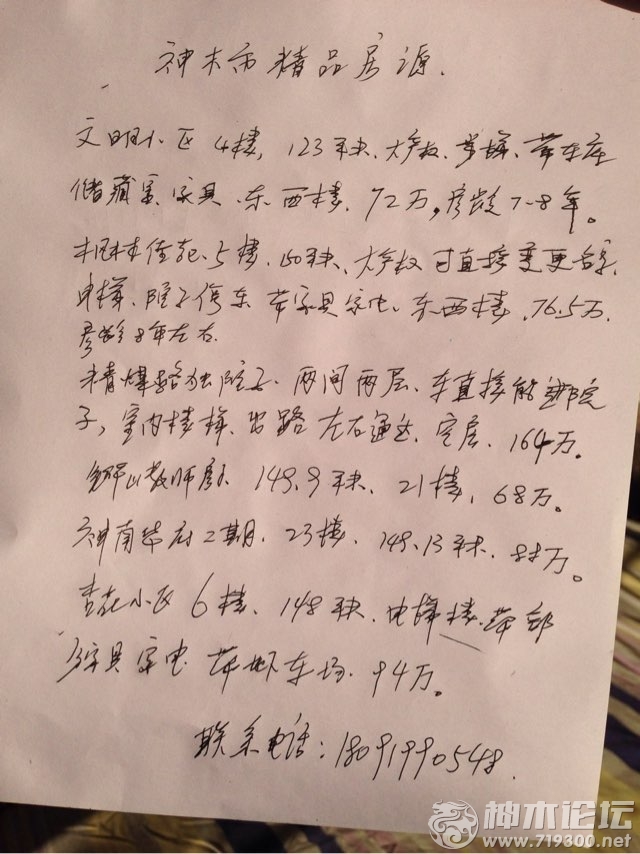 神木市精品房源.
文明小区4楼, 123平米、大产权、步梯、带车库
储藏室、家具、东西楼、72万。房龄7-8年。
杏花、5楼、150平米、大产权可直接变更名字、
电梯、院子停车带家具家电、东西楼、76.5万.
房龄8年左右.
精爆独院子、两间两层、车直接能进院
子, 室内楼梯、出路左右通达、空房、164万。
教师、149.9平米、21楼, 68万。
神南华府二期、23楼、148.13平米、88万。
杏花小区6楼、148平米、电梯楼、带部
家具家电带地下车场、94万。
联系电话: 18091990548.
神木论坛
www.719300.net